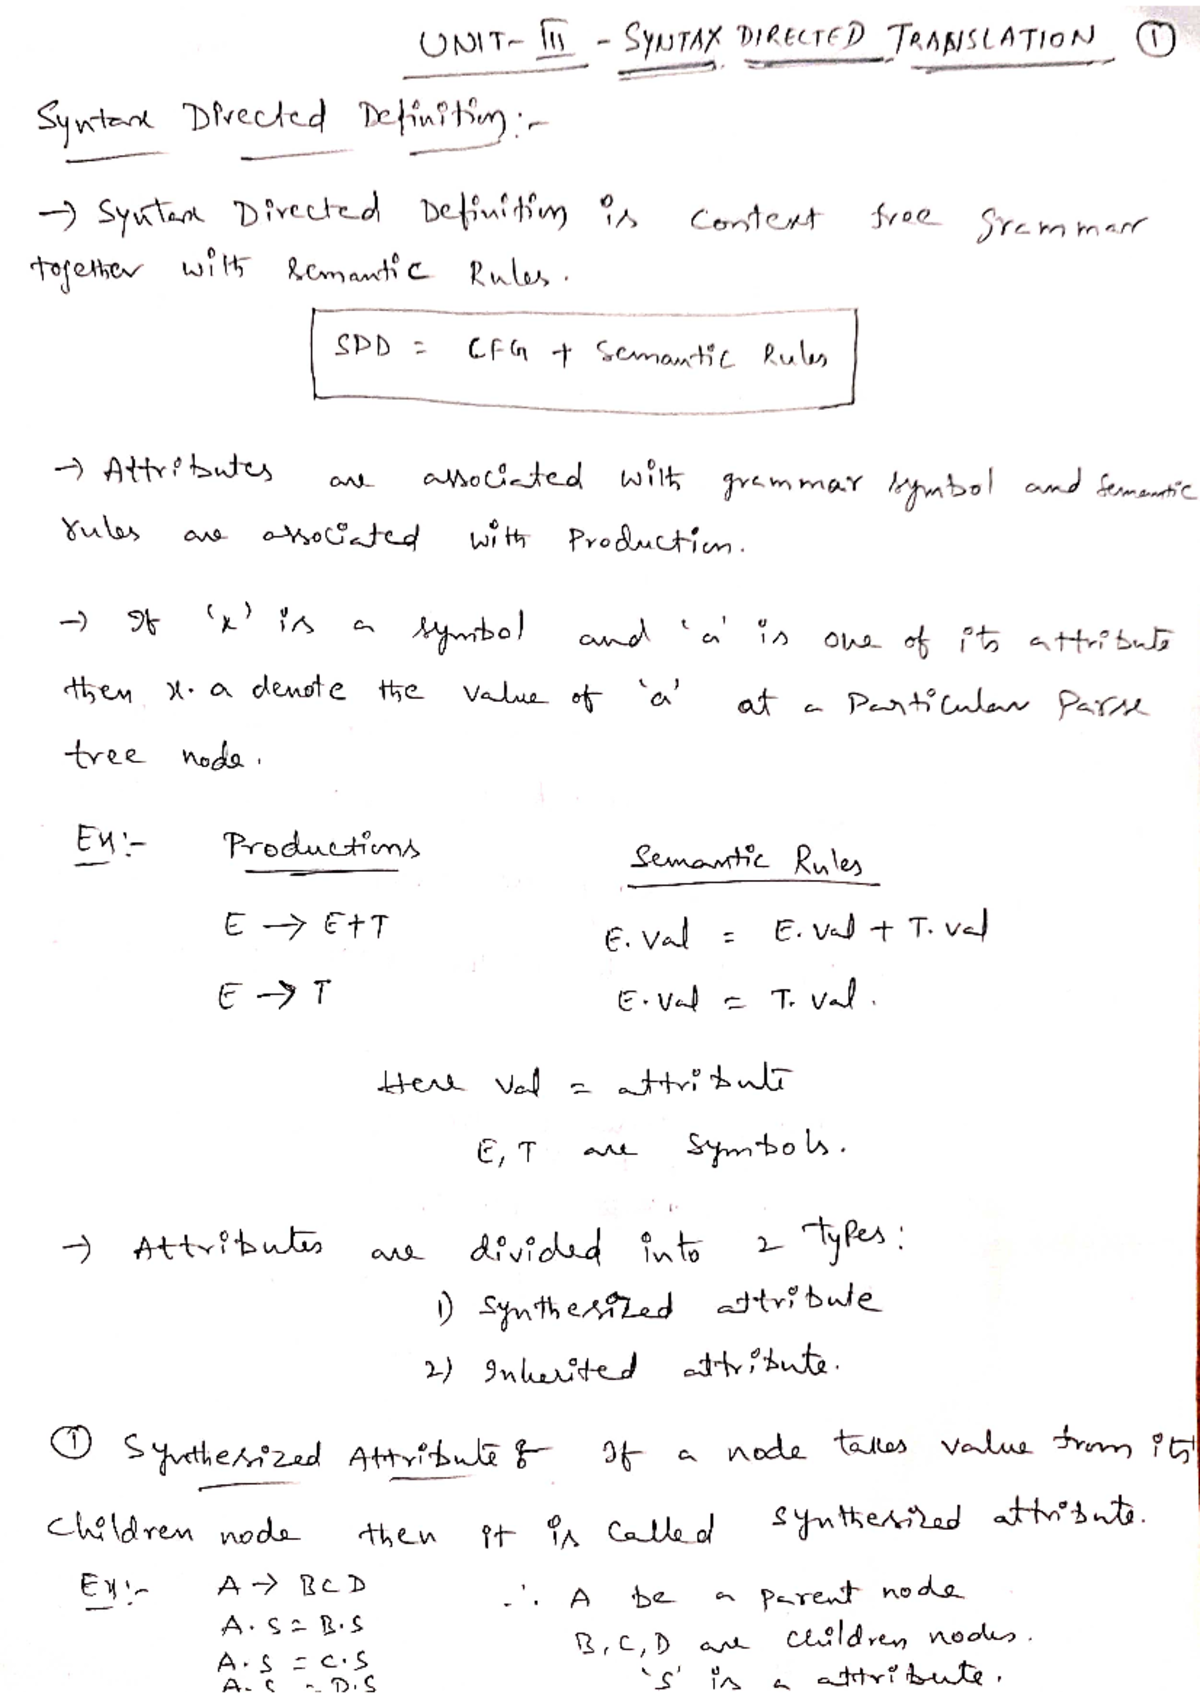 UNIT-III - SYNTAX DIRECTED TRANSLATION ①
Syntax Directed Definition:-
→ Syntax Directed Definition is context free grammar
together with semantic Rules.
SDD = CFG + Semantic Rules
→ Attributes are associated with grammar symbol and semantic
rules are associated with Production.
→ If 'x' is a symbol and 'a' is one of its attribute
then x.a denote the value of 'a' at a Particular Parse
tree node.
Ex:- Productions Semantic Rules
E → E+T E.val = E.val + T.val
E → T E.val = T.val.
Here val = attribute
E, T are symbols.
→ Attributes are divided into 2 types:
1) Synthesized attribute
2) Inherited attribute.
① Synthesized Attribute :- If a node takes value from its
children node then it is called synthesized attribute.
Ex:- A → BCD ∴ A be a parent node
A.S = B.S B, C, D are children nodes.
A.S = C.S 's' is a attribute.
A.S = D.S